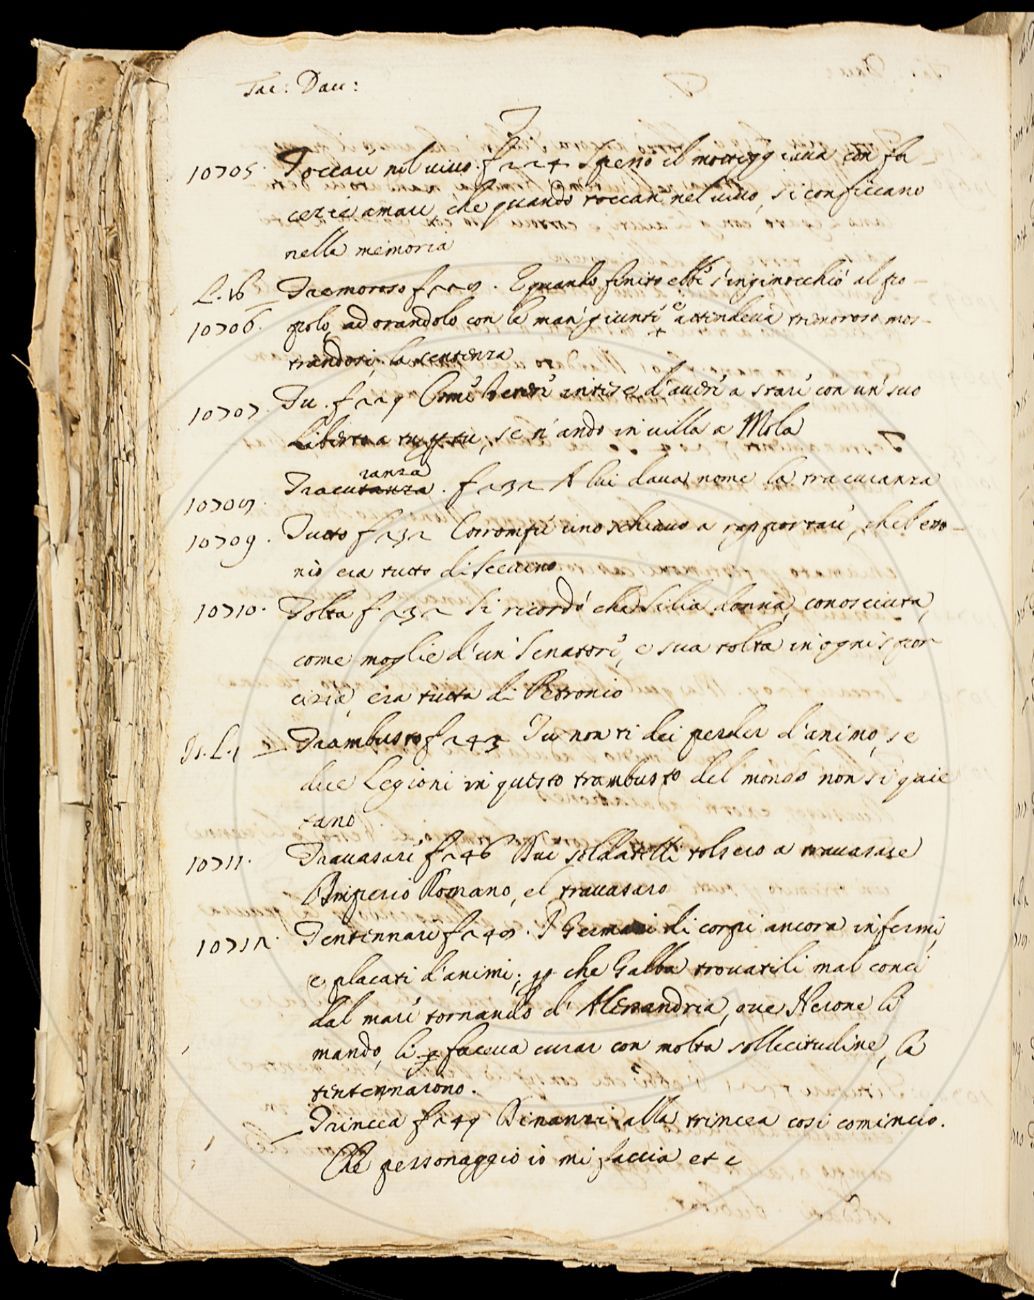 Tac: Dau:
T
10705. Toccare nel vivo. f 224 Spesso il motteggiava con fa
cezie amare, che quando toccan nel vivo, si conficcano
nella memoria
L. 16
Tremoroso f 229. E quando finito ebbe s'inginocchiò al po-
10706. polo, adorandolo con le man giunte, e attendeva tremoroso mos-
trandosi, la sentenza
10707. Tu. f 229 Come Venere intese d'avere a stare con un suo
Liberto a tu per tu, se n'andò in villa a Mola
ranza
10708. Tracutanza. f 232 A lui dava nome la tracuranza
10709. Tutto f 232 Corrompe uno schiavo a rapportare, che Petro-
nio era tutto di Scevino
10710. Tolta f 232 Si ricordò che Silia donna, conosciuta,
come moglie d'un Senatore, e sua tolta in ogni spor
cizia, era tutta di Petronio
St. L. 1 Trambusto f 243 Tu non ti dei perder d'animo, se
due Legioni in questo trambusto del mondo non si quie
tano
10711. Travasare f 246 Due soldatelli tolsero a travasare
l'Imperio Romano, e'l travasaro
10712. Tentennare f 248. I Germani di corpi ancora infermi,
e placati d'animi; per che Galba trovatili mal conci
dal mare tornando d'Alessandria, ove Nerone li
mandò, li faceva curar con molta sollecitudine, la
tentennarono.
Trincea f 249 Dinanzi alla trincea così cominciò.
Che personaggio io mi faccia etc